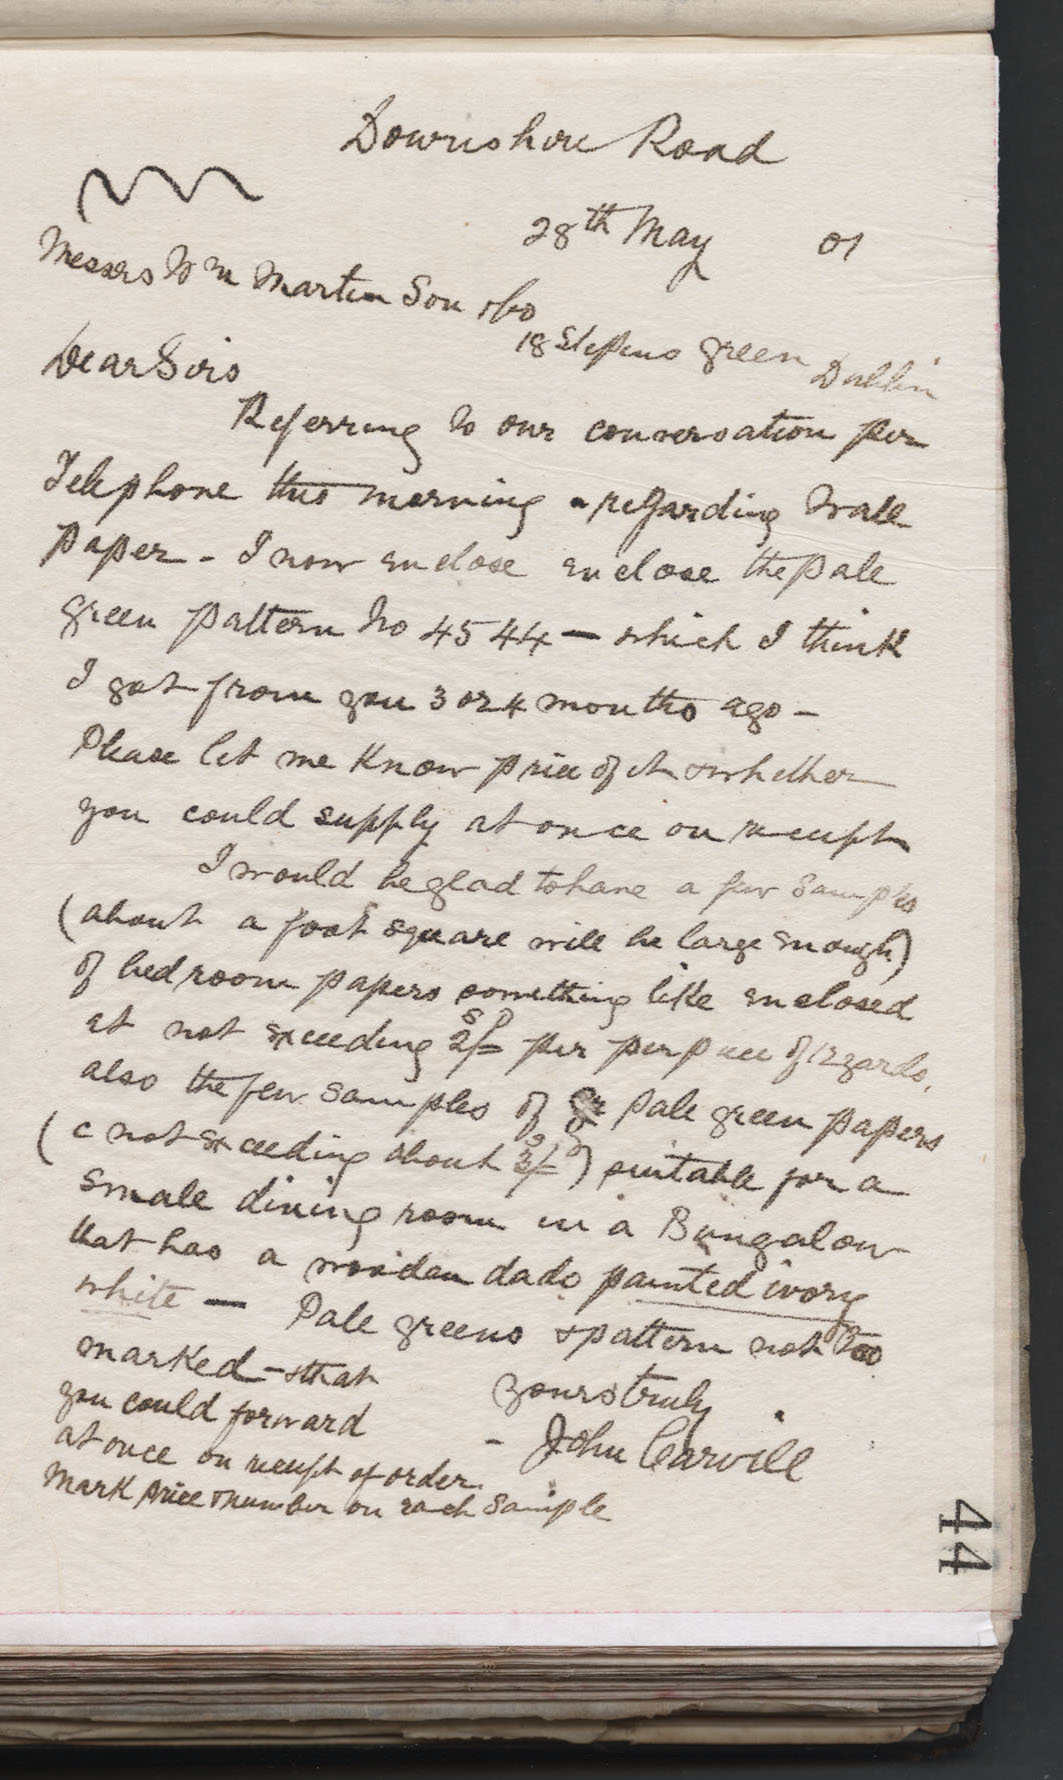 Downshire Road
28th May 01
Messrs Wm Martin Son & Co
18 Stephens Green Dublin
Dear Sirs
Referring to our conversation per
Telephone this morning - regarding Wall
Paper - I now enclose enclose the pale
green pattern No 4544 — which I think
I got from you 3 or 4 months ago -
Please let me know price of it & whether
you could supply at once on receipt
I would be glad to have a few samples
(about a foot square will be large enough)
of bedroom papers something like enclosed
at not exceeding 2/- per per piece of 12 yards.
also the few samples of Pale green papers
( not exceeding about 3/- ) suitable for a
small dining room in a Bungalow
that has a wooden dado painted ivory
white — Pale greens & pattern not too
marked - & that
you could forward
at once on receipt of order.
Mark price & number on each sample
yours truly
- John Carvill
44